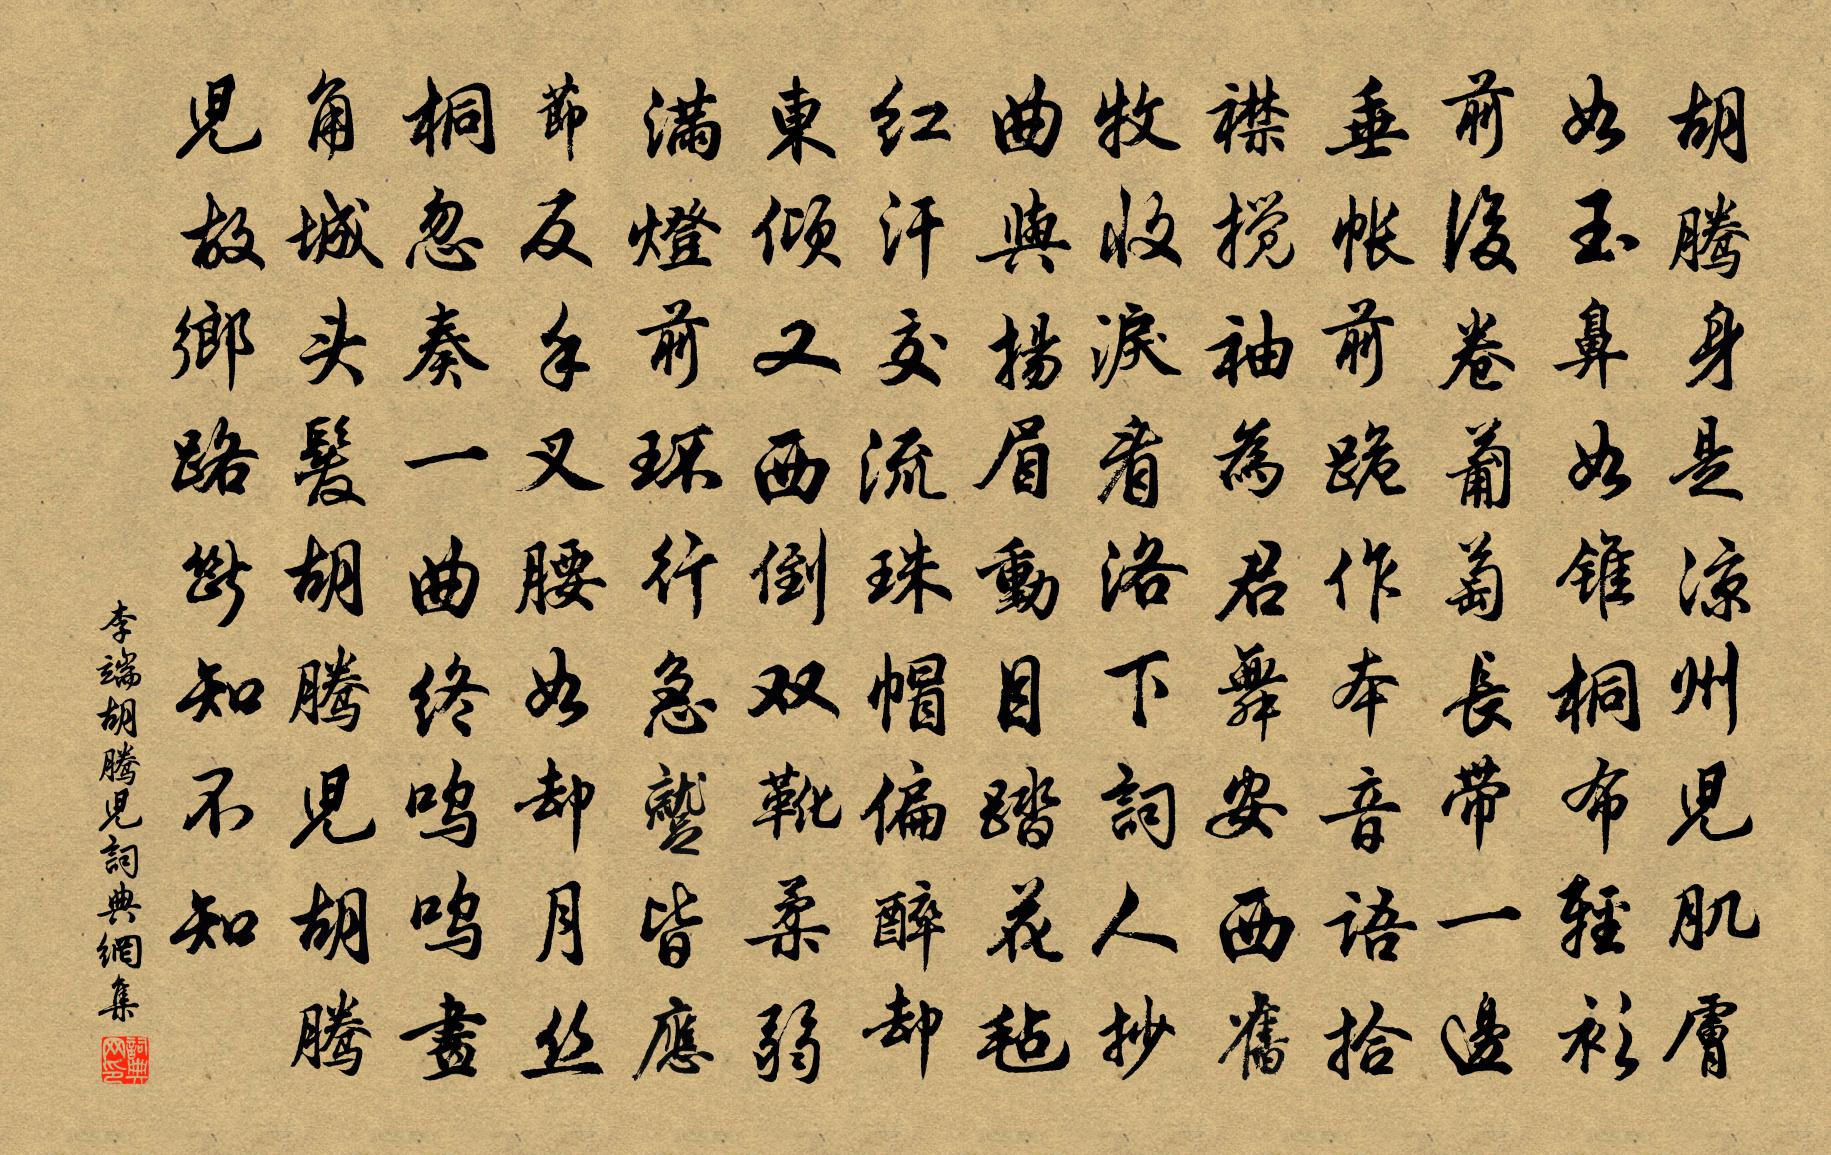 胡騰身是涼州児肌膚
如玉鼻如錐桐布輕衫
前後卷葡萄長帶一邊
垂帳前跪作本音語拾
襟搅袖為君舞安西舊
牧收淚看洛下詞人抄
曲與揚眉動目踏花氈
紅汗交流珠帽偏醉却
東傾又西倒双靴柔弱
滿燈前環行急蹵皆應
節反手叉腰如却月丝
桐忽奏一曲终嗚嗚畫
角城头髮胡騰児胡騰
児故鄉路斷知不知
李端胡騰児詞典網集
詞典网印